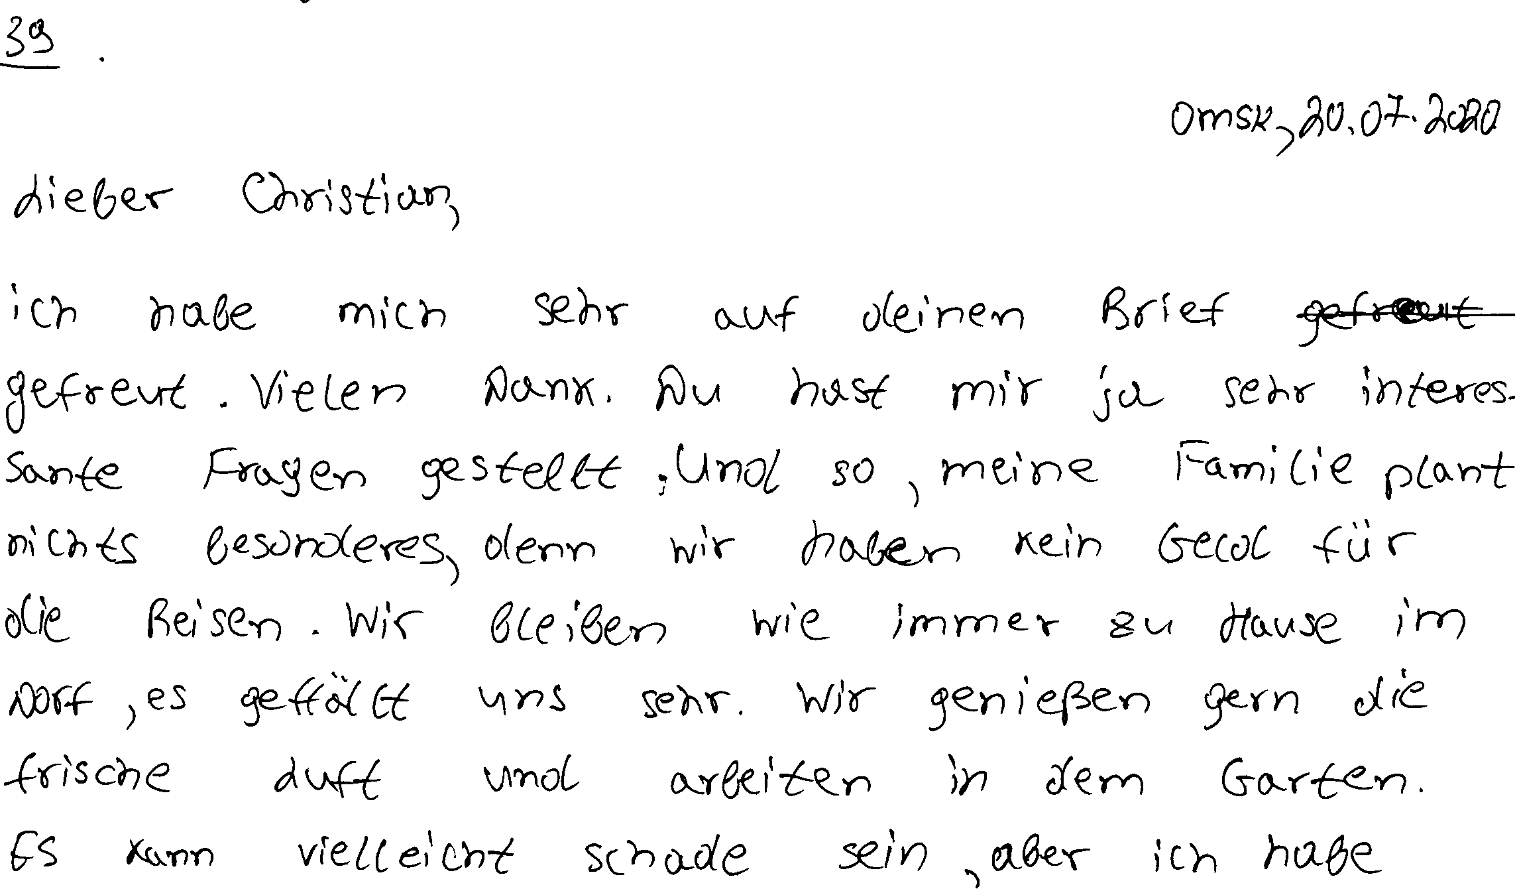 39.
Omsk, 20.07.2020
Lieber Christian,
ich habe mich sehr auf deinen Brief gefreut
gefreut. Vielen Dank. Du hast mir ja sehr interes-
sante Fragen gestellt. Und so, meine Familie plant
nichts besonderes, denn wir haben kein Geld für
die Reisen. Wir bleiben wie immer zu Hause im
Dorf, es geffällt uns sehr. Wir genießen gern die
frische Luft und arbeiten in dem Garten.
Es kann vielleicht schade sein, aber ich habe